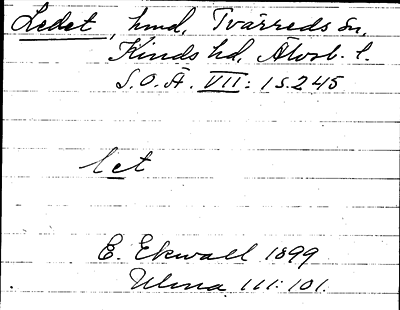 Ledet, hmd, Tvärreds sn,
Kinds hd, Älvsb. l.
S.O.Ä. VII:1 s. 245
let
E. Ekwall 1899
Ulma 111:101.